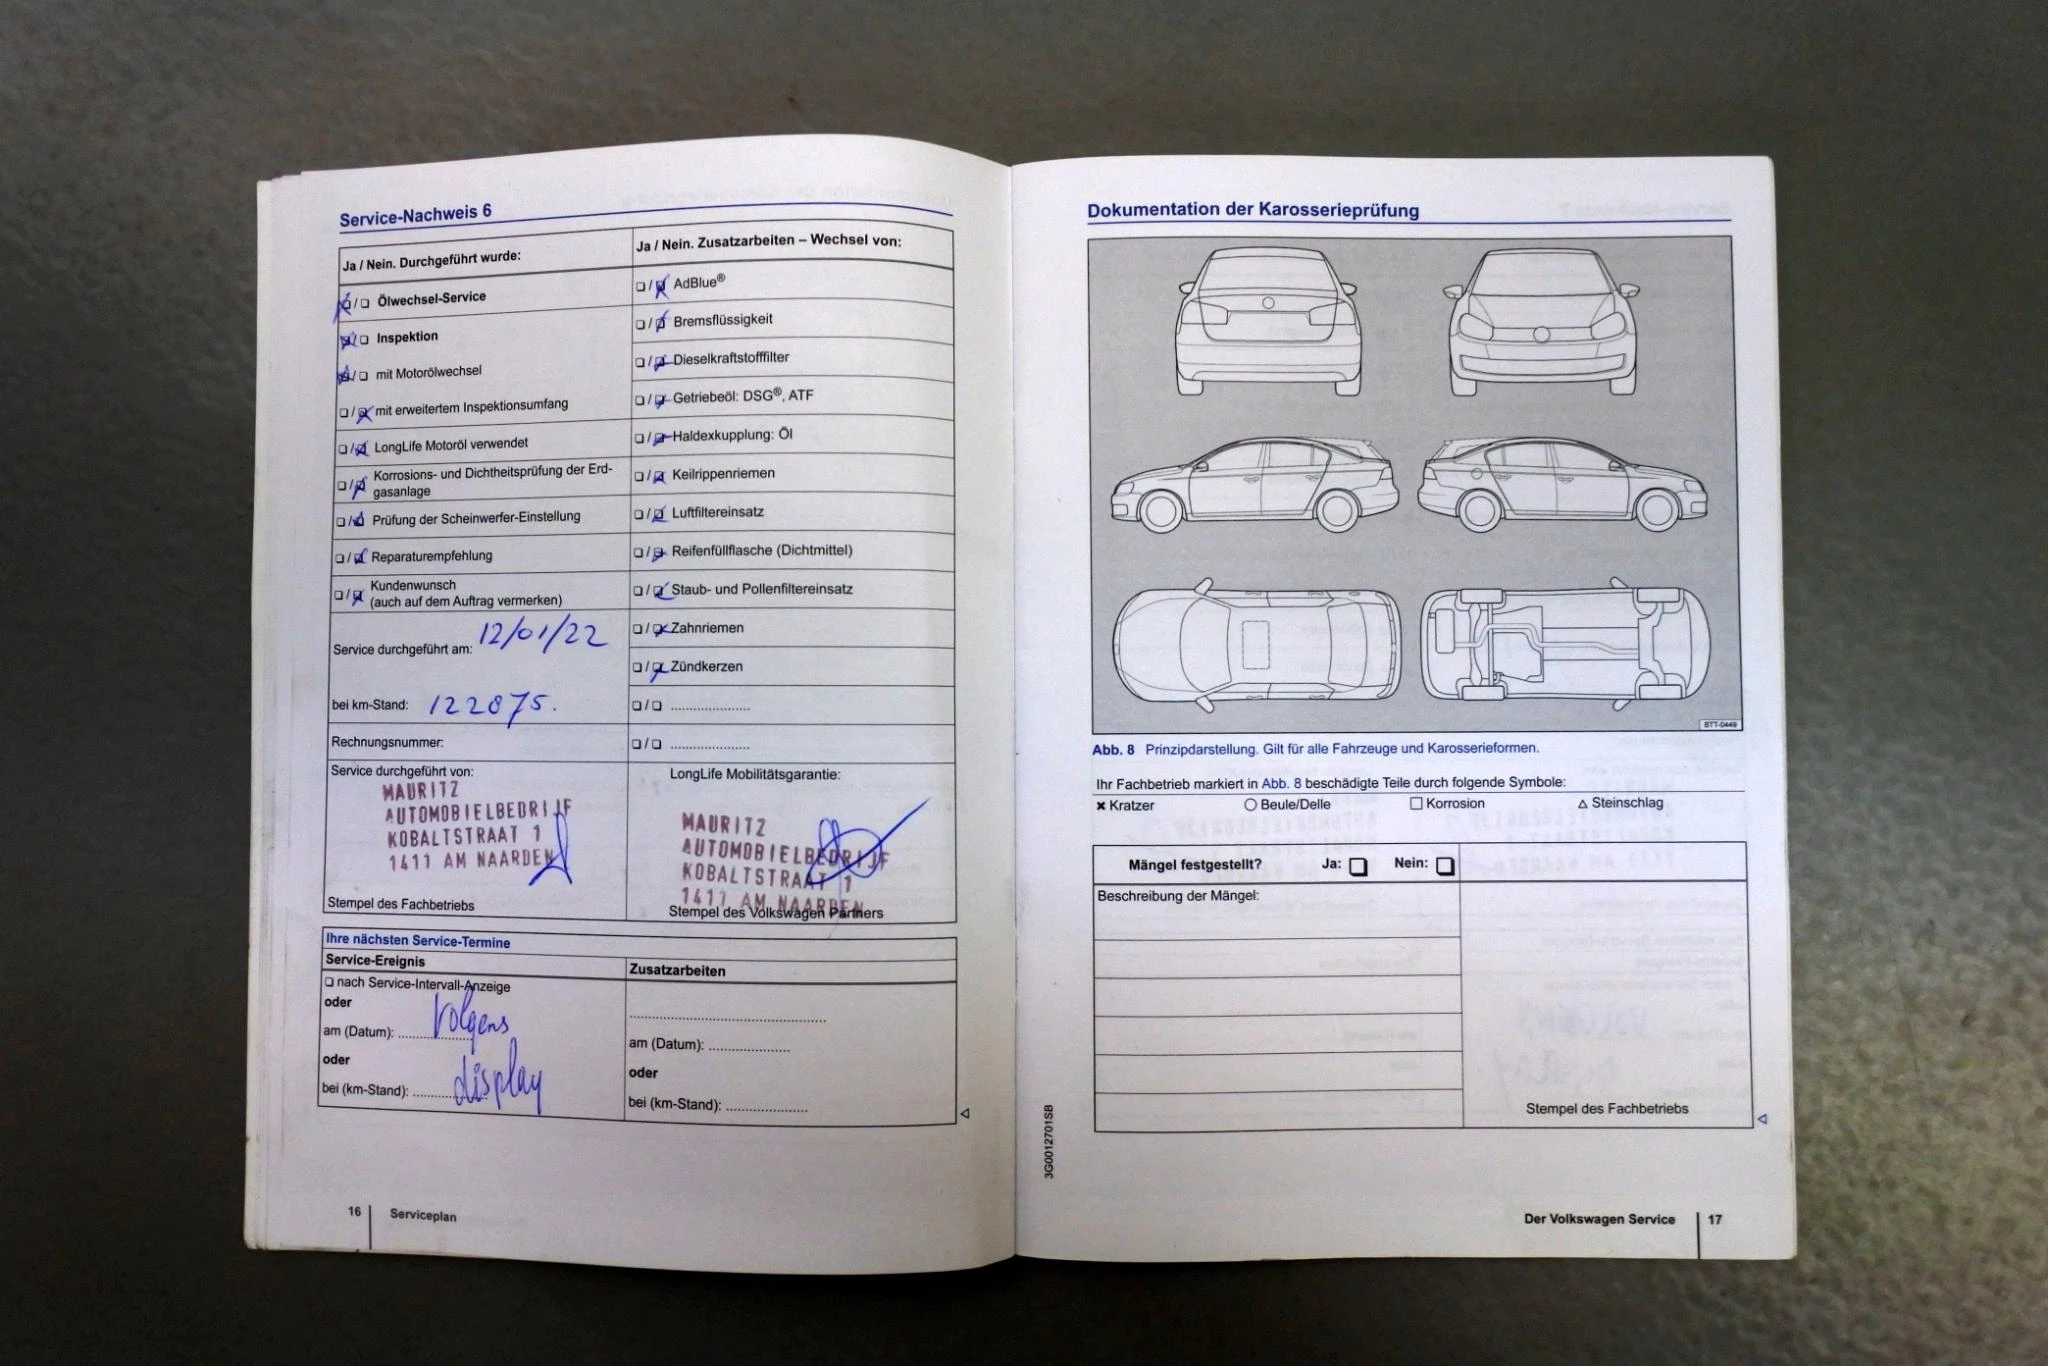 Service-Nachweis 6
Ja / Nein. Durchgeführt wurde:
❏ / ❏ Ölwechsel-Service
❏ / ❏ Inspektion
❏ / ❏ mit Motorölwechsel
❏ / ❏ mit erweitertem Inspektionsumfang
❏ / ❏ LongLife Motoröl verwendet
❏ / ❏ Korrosions- und Dichtheitsprüfung der Erd-
gasanlage
❏ / ❏ Prüfung der Scheinwerfer-Einstellung
❏ / ❏ Reparaturempfehlung
❏ / ❏ Kundenwunsch
(auch auf dem Auftrag vermerken)
Service durchgeführt am: 12/01/22
bei km-Stand: 122875.
Rechnungsnummer:
Service durchgeführt von:
MAURITZ
AUTOMOBIELBEDRIJF
KOBALTSTRAAT 1
1411 AM NAARDEN
Stempel des Fachbetriebs
Ja / Nein. Zusatzarbeiten – Wechsel von:
❏ / ❏ AdBlue®
❏ / ❏ Bremsflüssigkeit
❏ / ❏ Dieselkraftstofffilter
❏ / ❏ Getriebeöl: DSG®, ATF
❏ / ❏ Haldexkupplung: Öl
❏ / ❏ Keilrippenriemen
❏ / ❏ Luftfiltereinsatz
❏ / ❏ Reifenfüllflasche (Dichtmittel)
❏ / ❏ Staub- und Pollenfiltereinsatz
❏ / ❏ Zahnriemen
❏ / ❏ Zündkerzen
❏ / ❏ ....................
❏ / ❏ ....................
LongLife Mobilitätsgarantie:
MAURITZ
AUTOMOBIELBEDRIJF
KOBALTSTRAAT 1
1411 AM NAARDEN
Stempel des Volkswagen Partners
Ihre nächsten Service-Termine
Service-Ereignis
❏ nach Service-Intervall-Anzeige
oder
am (Datum): .................... Volgens
oder
bei (km-Stand): .................... display
Zusatzarbeiten
..................................................
am (Datum): ....................
oder
bei (km-Stand): ....................
16 Serviceplan
Dokumentation der Karosserieprüfung
BTT-0449
Abb. 8 Prinzipdarstellung. Gilt für alle Fahrzeuge und Karosserieformen.
Ihr Fachbetrieb markiert in Abb. 8 beschädigte Teile durch folgende Symbole:
✖ Kratzer ○ Beule/Delle □ Korrosion △ Steinschlag
Mängel festgestellt? Ja: ❏ Nein: ❏
Beschreibung der Mängel:
Stempel des Fachbetriebs
3G0012701SB
Der Volkswagen Service 17